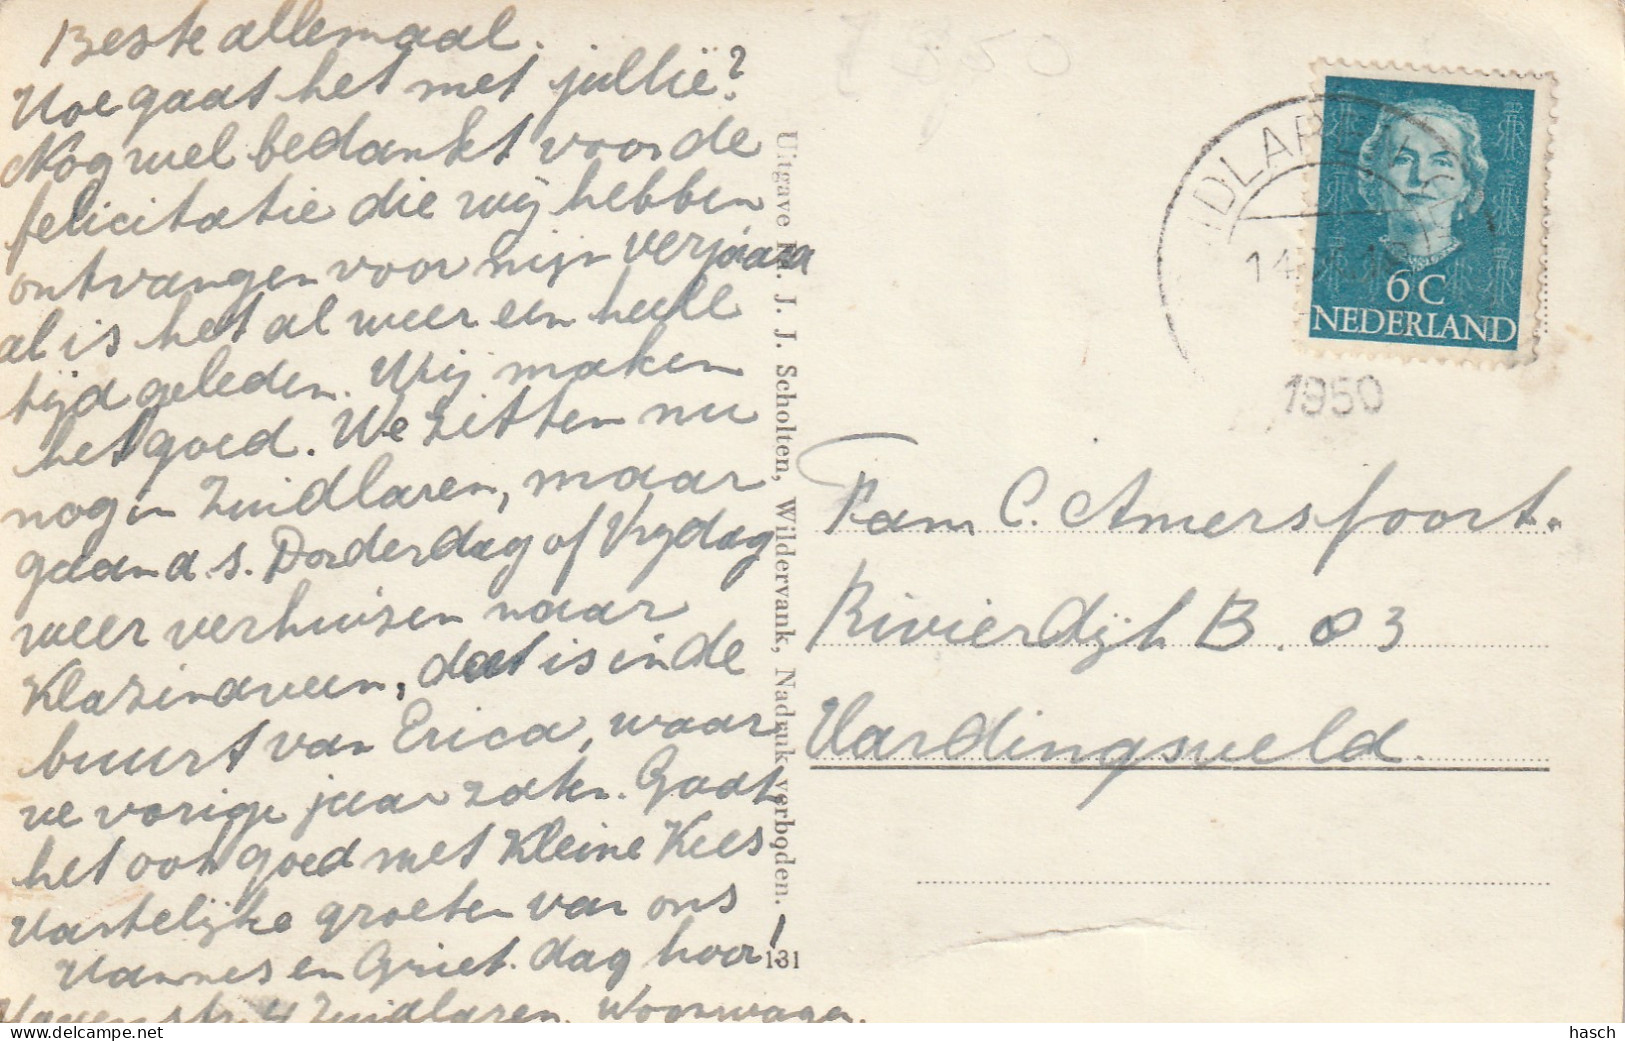 Beste allemaal.
Hoe gaat het met jullië?
Nog wel bedankt voor de
felicitatie die wij hebben
ontvangen voor mijn verjaard
al is het al weer een heele
tijd geleden. Wij maken
het goed. We zitten nu
nog in Zuidlaren, maar
gaan a.s. Donderdag of Vrijdag
weer verhuizen naar
Klazinaveen, dat is in de
buurt van Erica, waar
we vorige jaar zaten. Gaat
het ook goed met kleine Kees
Hartelijke groeten van ons
Hannes en Griet. dag hoor!
Havenstr. 4 Zuidlaren. Woonwagen.
Uitgave Fa. J. J. Scholten, Wildervank, Nadruk verboden.
131
1950
6 C
NEDERLAND
1950
Fam C. Amersfoort.
Rivierdijk B. 03
Hardingsveld.
hasch